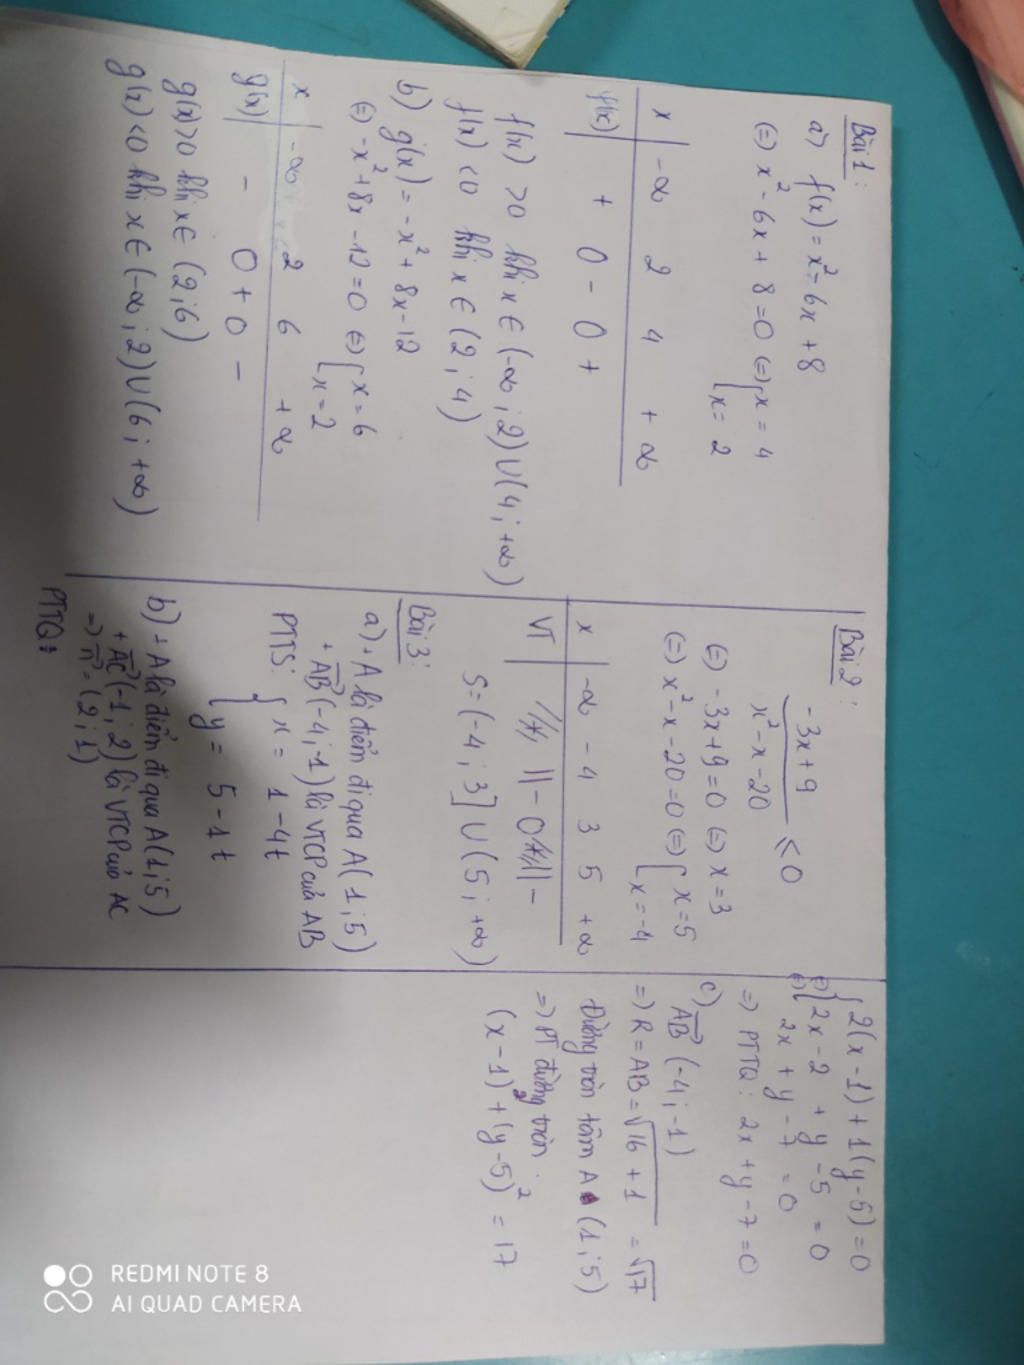 Bài 1:
a) f(x) = x² - 6x + 8
(=) x² - 6x + 8 = 0 (=) [ x = 4
x = 2
x | -∞ 2 4 +∞
f(x) | + 0 - 0 +
f(x) > 0 khi x ∈ (-∞ ; 2) U (4 ; +∞)
f(x) < 0 khi x ∈ (2 ; 4)
b) g(x) = -x² + 8x - 12
(=) -x² + 8x - 12 = 0 (=) [ x = 6
x = 2
x | -∞ 2 6 +∞
g(x) | - 0 + 0 -
g(x) > 0 khi x ∈ (2 ; 6)
g(x) < 0 khi x ∈ (-∞ ; 2) U (6 ; +∞)
Bài 2:
-3x + 9
x² - x - 20 ≤ 0
(=) -3x + 9 = 0 (=) x = 3
(=) x² - x - 20 = 0 (=) [ x = 5
x = -4
x | -∞ -4 3 5 +∞
VT | || - 0 || -
S = (-4 ; 3] U (5 ; +∞)
Bài 3:
a) + A là điểm đi qua A (1 ; 5)
+ AB (-4 ; -1) là VTCP của AB
PTTS: { x = 1 - 4t
y = 5 - 1t
b) + A là điểm đi qua A (1 ; 5)
+ AC (-1 ; 2) là VTCP của AC
=) n = (2 ; 1)
PTTQ:
{ 2(x - 1) + 1(y - 5) = 0
(=) { 2x - 2 + y - 5 = 0
(=) 2x + y - 7 = 0
=) PTTQ: 2x + y - 7 = 0
c) AB (-4 ; -1)
=) R = AB = √16 + 1 = √17
Đường tròn tâm A (1 ; 5)
=) PT đường tròn
(x - 1)² + (y - 5)² = 17
REDMI NOTE 8
AI QUAD CAMERA